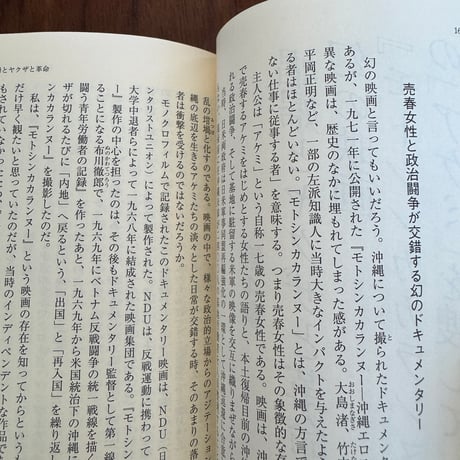 16
売春女性と政治闘争が交錯する幻のドキュメンタリー
幻の映画と言ってもいいだろう。沖縄について撮られたドキュメ
あるが、一九七一年に公開された『モトシンカカランヌー―沖縄エロ
異な映画は、歴史のなかに埋もれてしまった感がある。大島渚、竹
平岡正明など、一部の左派知識人に当時大きなインパクトを与えは
る者はほとんどいない。「モトシンカカランヌー」とは、沖縄の方言で
ない仕事に従事する者」を意味する。つまり売春女性はその象徴的な
主人公は「アケミ」という自称一七歳の売春女性だ。映画は、
で売春するアケミをはじめとする女性たちの語りと、本土復帰目前の
れる政治闘争、そして基地に駐留する米軍の映像を交互に織りまぜなが
とヤクザと革命
乱の坩堝と化すのである。映画の中で、様々な政治的立場からのアジテーショ
縄の底辺を生きるアケミたちの淡々とした日常が交錯する時、そのあまりの落
者は衝撃を受けるのではないだろうか。
モノクロフィルムで記録されたこのドキュメンタリー映画は、NDU（日
ンタリストユニオン）によって製作された。NDUは、反戦運動に携わって
大学中退者らによって一九六八年に結成された映画集団である。『モトシン
ー』製作の中心を担ったのは、その後もドキュメンタリー監督として第一線
ることになる布川徹郎で、一九六九年にベトナム反戦闘争の統一戦線を描
闘う青年労働者の記録』を作ったあと、一九六九年から米国統治下の沖縄に
ザが切れるたびに「内地」へ戻るという、「出国」と「再入国」を繰り返
カランヌー』を撮影したのだ。
私は、『モトシンカカランヌー』という映画の存在を知ってからという
だけ早く観たいと思っていたのだが、当時のインディペンデントな作品で